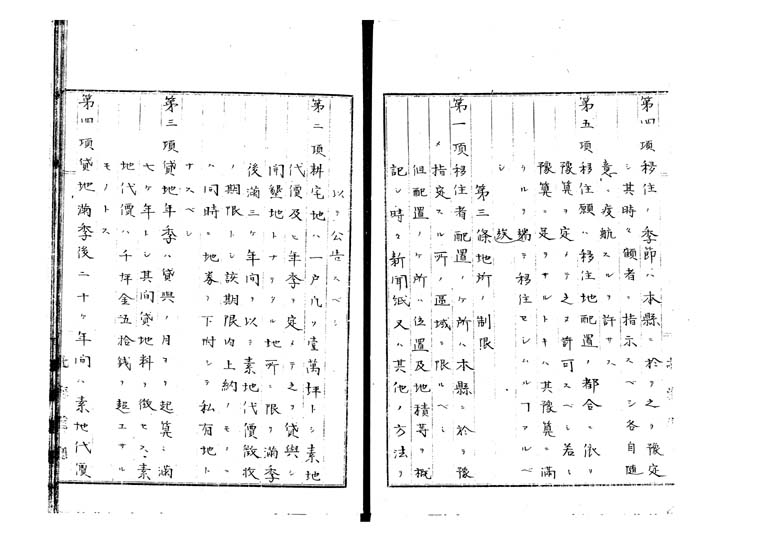 第四項移住ノ季節ハ本縣ニ於テ之ヲ豫定
シ其時々願者ニ指示スベシ各自随
意ニ渡航スルヲ許サス
第五項移住願ハ移住地配置ノ都合ニ依リ
豫算ヲ定メテ之ヲ許可スベシ若シ
豫算ニ足ラサルトキハ其豫算ニ満
ツルヲ端テ移住セシムルコアルベ
シ
第三條地所ノ制限
第一項移住者配置ノケ所ハ本縣ニ於テ豫
メ指定スル所ノ區域ニ限ルベシ
但配置ノケ所ハ位置及地積等ヲ概
記シ時々新聞紙又ハ其他ノ方法ヲ
以テ公告スベシ
第二項耕宅地ハ一戸凡ソ壹萬坪トシ素地
代價及ヒ年季ヲ定メテ之ヲ貸與シ
開墾地トナリタル地所ニ限リ満季
後満三ケ年間ヲ以テ素地代價徴収
ノ期限トシ該期限内上納ノモノニ
ハ同時ニ地券ヲ下附シテ私有地ト
ナスベシ
第三項貸地年季ハ貸與ノ月ヨリ起算シ満
七ケ年トシ其間貸地料ヲ徴セス素
地代價ハ千坪金五拾銭ヲ超エサル
モノトス
第四項貸地満季後二十ケ年間ハ素地代價